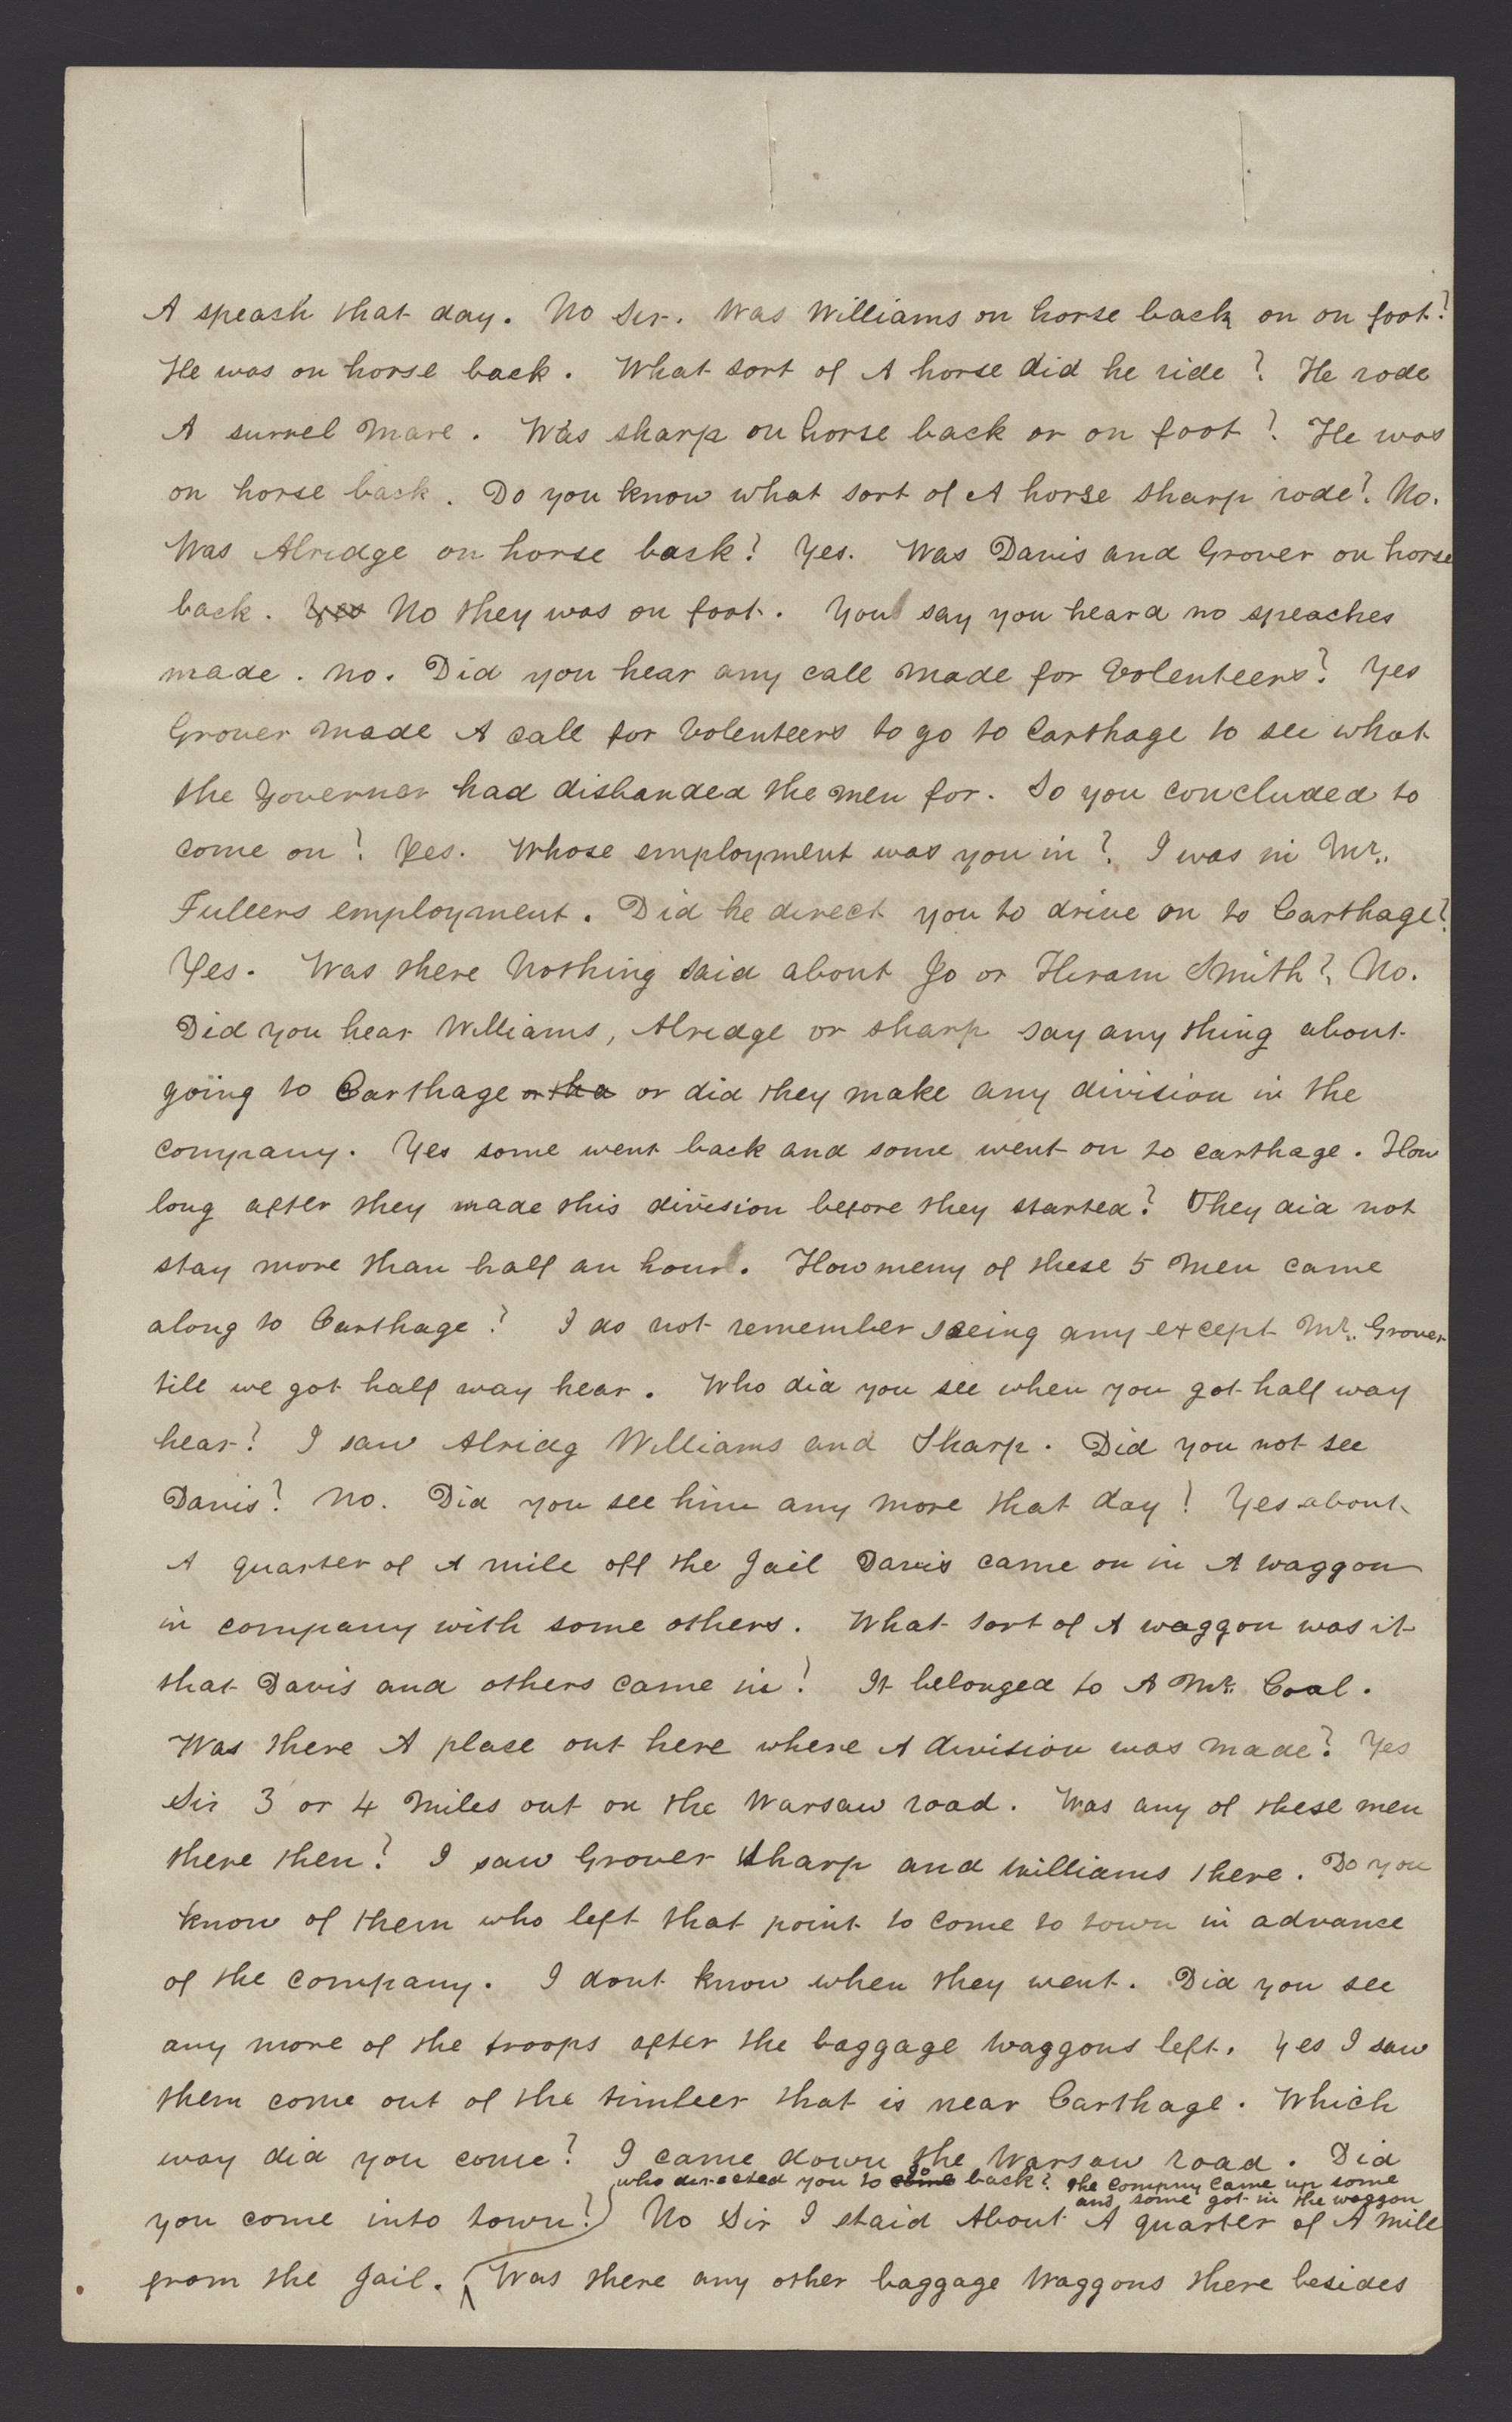 A speach that day. No Sir. Was Williams on horse back on on foot?
He was on horse back. What sort of A horse did he ride? He rode
A surrel Mare. Was sharp on horse back or on foot? He was
on horse back. Do you know what sort of A horse sharp rode? No.
Was Alridge on horse back? Yes. Was Davis and Grover on horse
back. Yes No they was on foot. You say you heard no speaches
made. no. Did you hear any call made for Volenteers? Yes
Grover made A call for Volenteers to go to Carthage to see what
the Governor had disbanded the men for. So you concluded to
come on? Yes. Whose employment was you in? I was in Mr.
Fullers employment. Did he direct you to drive on to Carthage?
Yes. Was there Nothing said about Jo or Hiram Smith? No.
Did you hear Williams, Alridge or sharp say any thing about
going to Carthage or tha or did they make any division in the
company. Yes some went back and some went on to carthage. How
long after they made this division before they started? They did not
stay more than half an hour. How meny of these 5 Men came
along to Carthage? I do not remember seeing any except Mr. Grover
till we got half way hear. Who did you see when you got half way
hear? I saw Alridg Williams and Sharp. Did you not see
Davis? No. Did you see him any more that day? Yes about
A quarter of A mile off the Jail Davis came on in A waggon
in company with some others. What sort of A waggon was it
that Davis and others came in? It belonged to A Mr. Coal.
Was there A place out here where A division was made? Yes
Sir 3 or 4 Miles out on the Warsaw road. Was any of these men
there then? I saw Grover Sharp and Williams there. Do you
know of them who left that point to come to town in advance
of the company. I dont know when they went. Did you see
any more of the troops after the baggage waggons left. Yes I saw
them come out of the timber that is near Carthage. Which
way did you come? I came down the Warsaw road. Did
who directed you to come go back? the company came up some
and some got in the waggon
you come into town? No Sir I staid About A quarter of A Mile
from the Jail. Was there any other baggage Waggons there besides